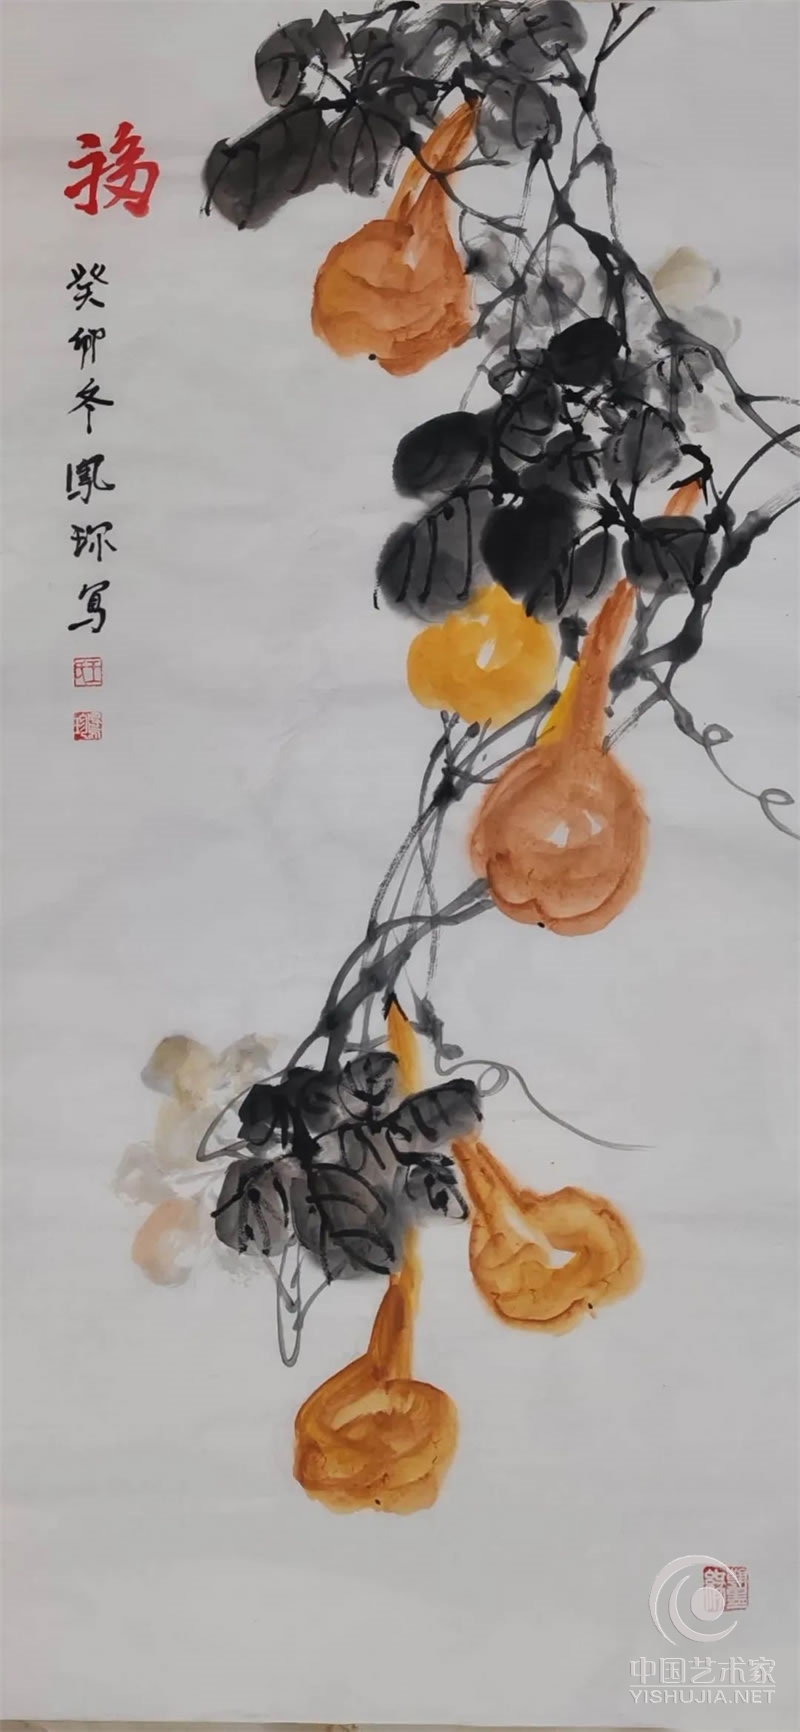 福
癸卯冬凤珎写
中国艺术家
YISHUJIA.NET